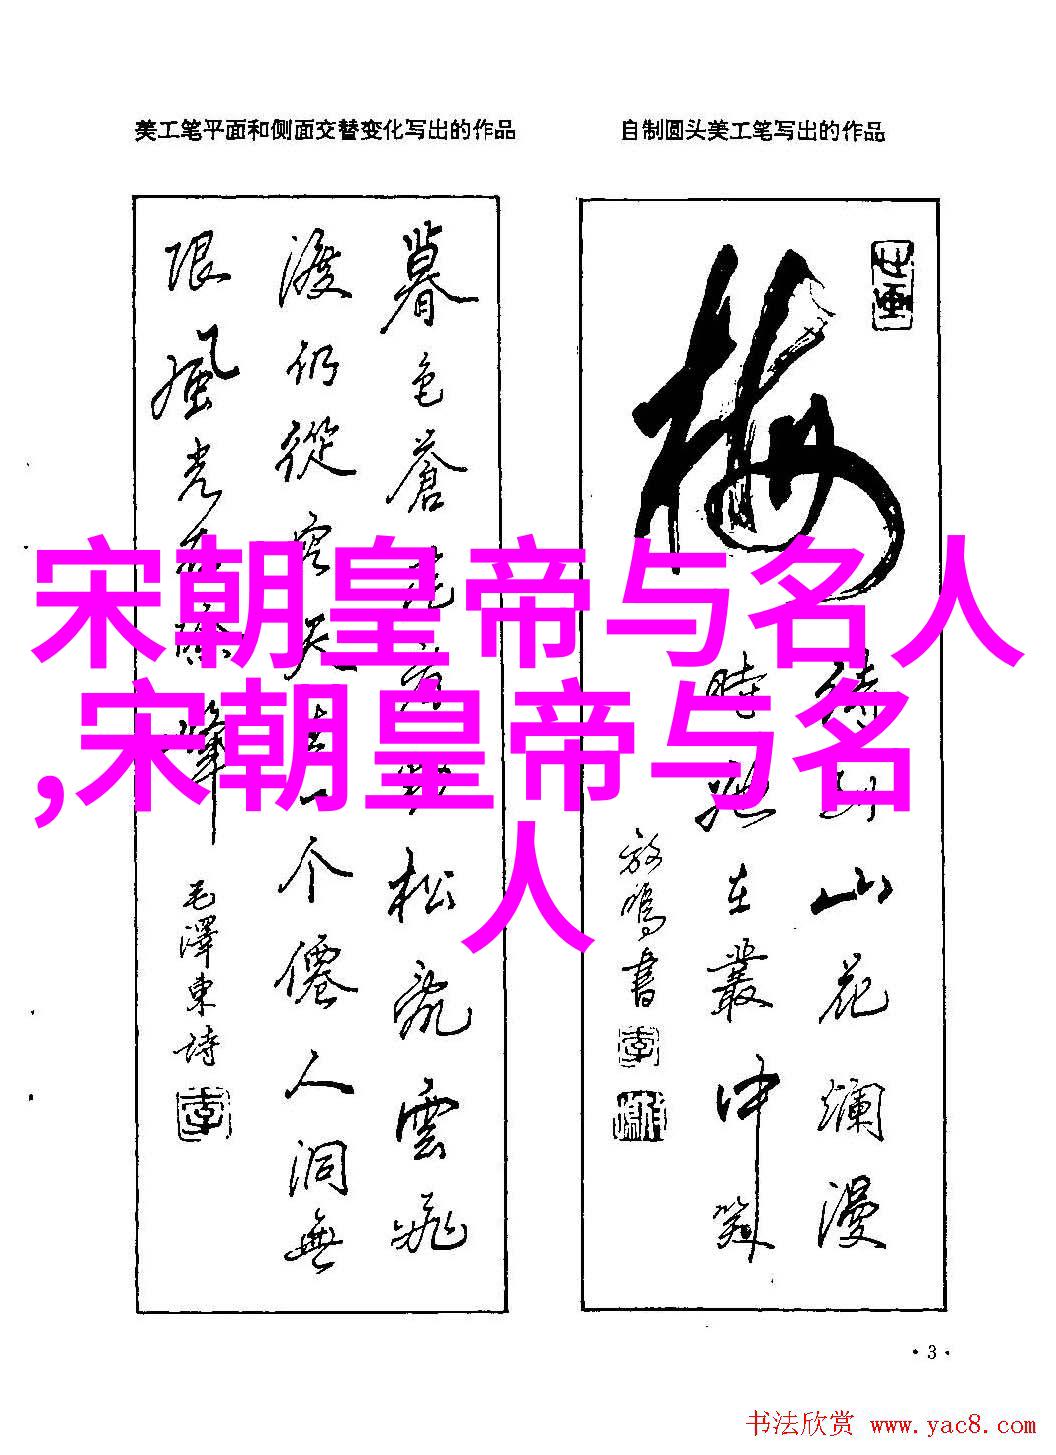 美工笔平面和侧面交替变化写出的作品
自制圆头美工笔写出的作品
暮色苍茫看劲松乱云飞
渡仍從容天生一个僊人洞無
限風光在險峰
毛澤東詩
梅
待到山花爛漫
時她在叢中笑
宋朝皇帝与名人
,宋朝皇帝与名
人
·3·
书法欣赏 www.yac8.com